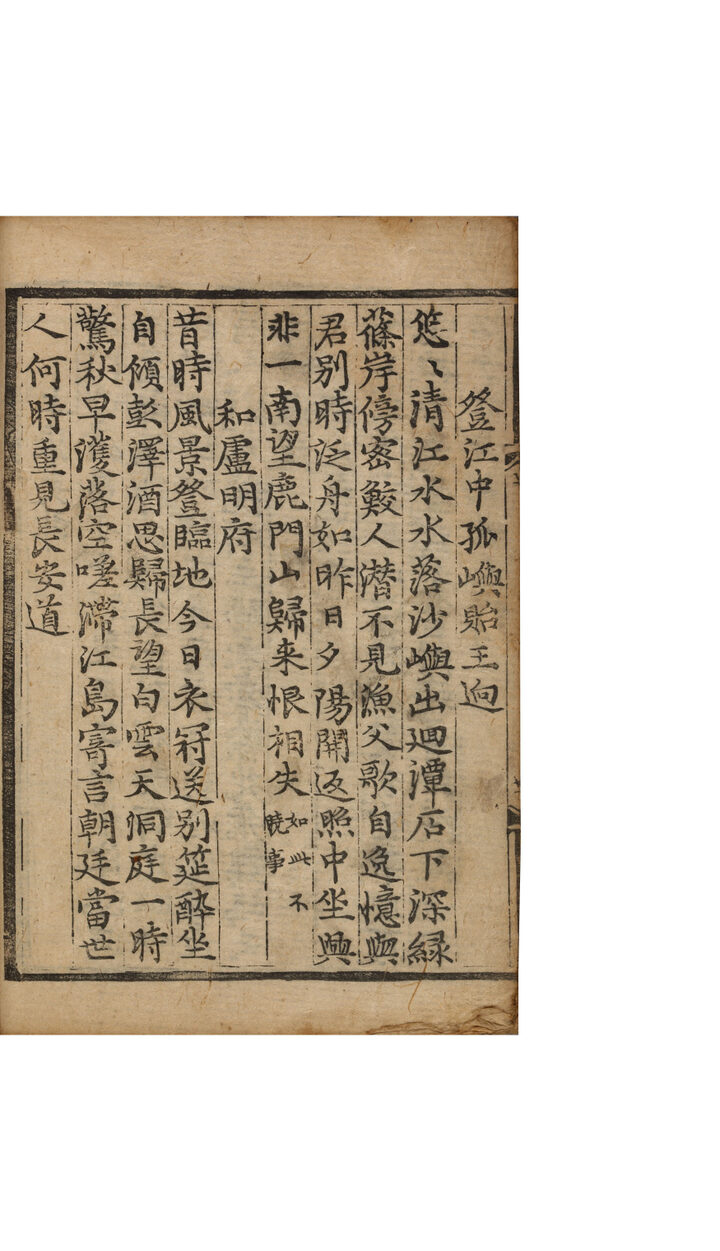 登江中孤嶼貽王逈
悠〻清江水水落沙嶼出迴潭石下深緑
篠岸傍密鮫人潛不見漁父歌自逸憶與
君別時泛舟如昨日夕陽開返照中坐興
非一南望鹿門山歸来恨相失如此不曉事
和盧明府
昔時風景登臨地今日衣冠送别筵醉坐
自傾彭澤酒思歸長望白雲天洞庭一時
驚秋早濩落空嗟滯江島寄言朝廷當世
人何時重見長安道